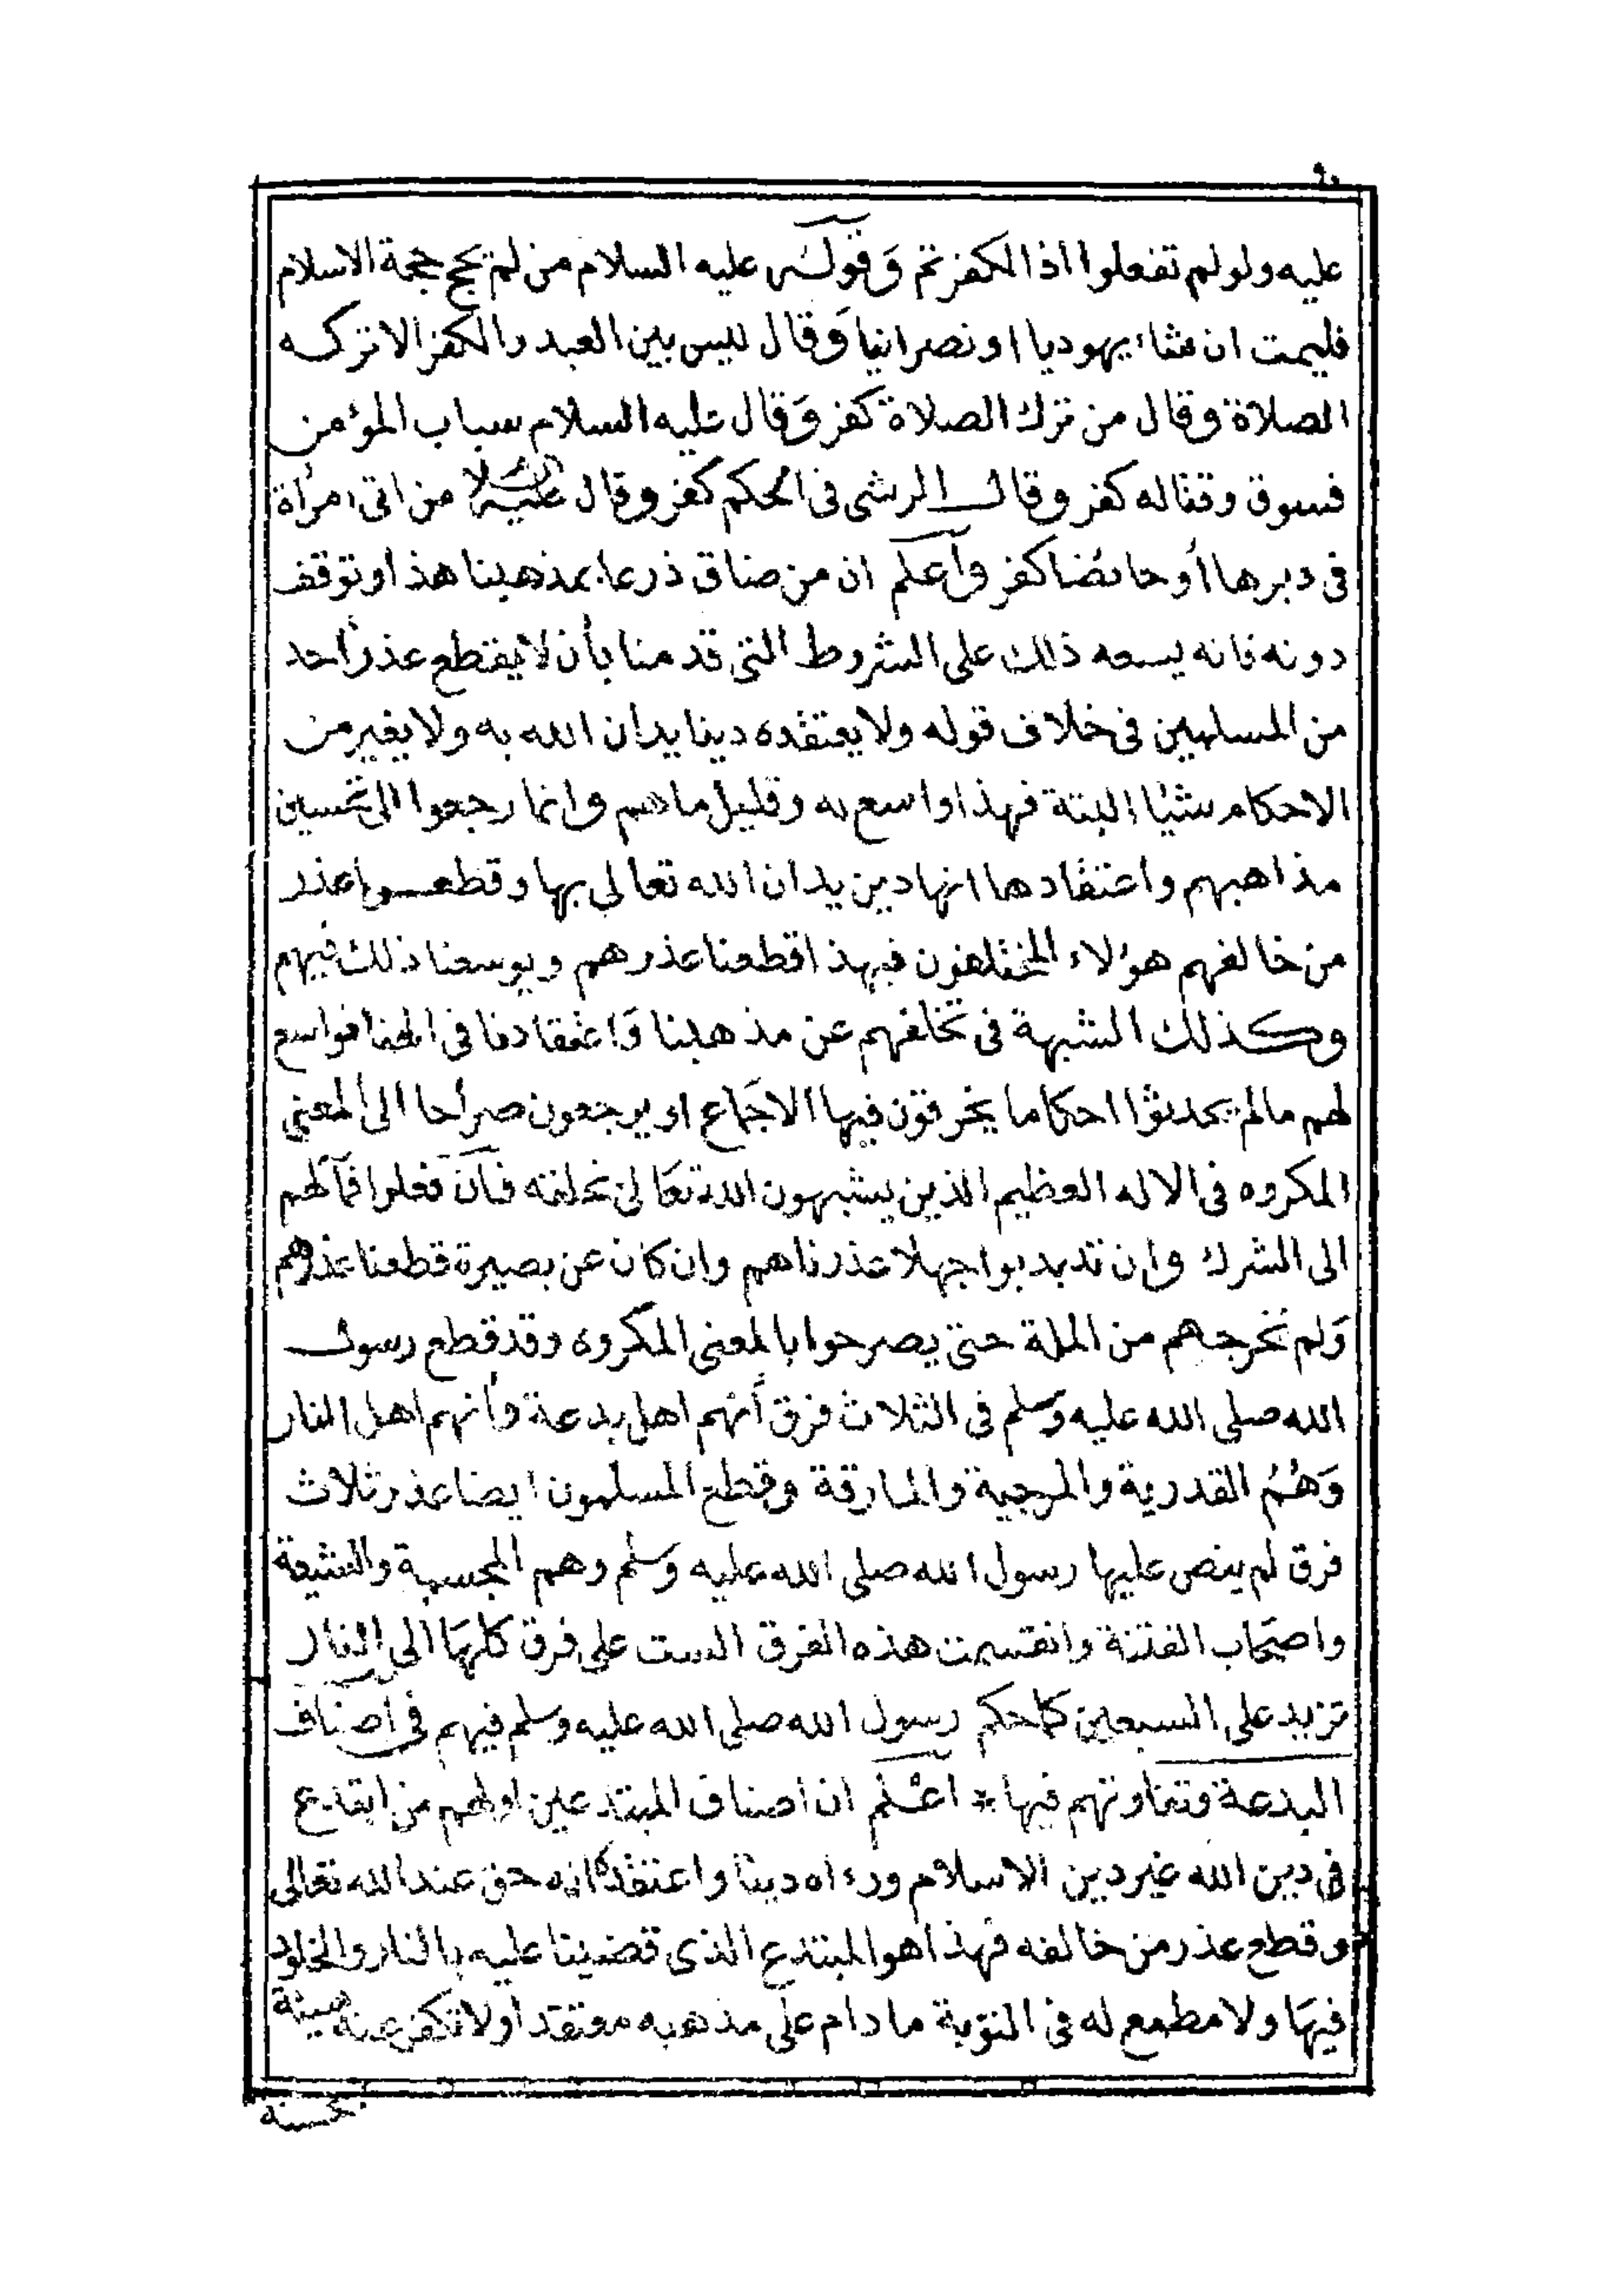 ٩٠
عليه ولو لم تفعلوا اذا لكفرتم وَقَولـه عليه السلام من لم يحج حجة الاسلام
فليمت ان شاء يهوديا او نصرانيا وَقال ليس بين العبد والكفر الا تركه
الصلاة وقال من ترك الصلاة كفر وَقال عليه السلام سباب المؤمن
فسوق وقتاله كفر وقال الرشى فى الحكم كفر وقال عليه السلام من اتى امرأة
فى دبرها أو حائضا كفر واعلم ان من ضاق ذرعا بمذهبنا هذا وتوقف
دونه فانه يسعه ذلك على الشروط التى قدمنا بأن لا يقطع عذر أحد
من المسلمين فى خلاف قوله ولا يعتقده دينا يدان الله به ولا يغير من
الاحكام شيئا البتة فهذا واسع به وقليل ما هم وانما رجعوا الى تحسين
مذاهبهم واعتقادها انها دين يدان الله تعالى بها وقطعـوا عذر
من خالفهم هؤلاء المختلفون فبهذا قطعنا عذرهم ويوسعنا ذلك فيهم
وكذلك الشبهة فى تخلفهم عن مذهبنا وَاعتقادنا فى الهنا فواسع
لهم مالم يحدثوا احكاما يخرقون فيها الاجَماع او يرجعون صراحا الى المعنى
المكروه فى الاله العظيم الذين يشبهون الله تعَالى بخلقه فان فعلوا فمآلهم
الى الشرك وان تذبذبوا جهلا عذرناهم وان كان عن بصيرة قطعنا عذرهم
وَلم نخرجهم من الملة حتى يصرحوا بالمعنى المكروه وقد قطع رسول
الله صلى الله عليه وَسلم فى الثلاث فرق أنهم اهل بدعة وأنهم اهل النار
وَهُمُ القدرية والمرجية والمارقة وقطع المسلمون ايضا عذر ثلاث
فرق لم ينص عليها رسول الله صلى الله عليه وَسلم وهم المجسمة والشيعة
واصحَاب الفتنة وانقسمت هذه الفرق الست على فرق كلهَا الى النار
تزيد على السبعين كما حكم رسول الله صلى الله عليه وسلم فيهم فى أصناف
البدعة وتفاوتهم فيها * اعْـلم ان اصناف المبتدعين اولهم من ابتدع
فى دين الله غير دين الاسلام ورءاه دينا واعتقد انه حق عند الله تعالى
وقطع عذر من خالفه فهذا هو المبتدع الذى قضينا عليه بالنار والخلود
فيهَا ولا مطمع له فى التوبة ما دام على مذهبه معتقدا ولا تكفر عنه سيئة
بحسنة